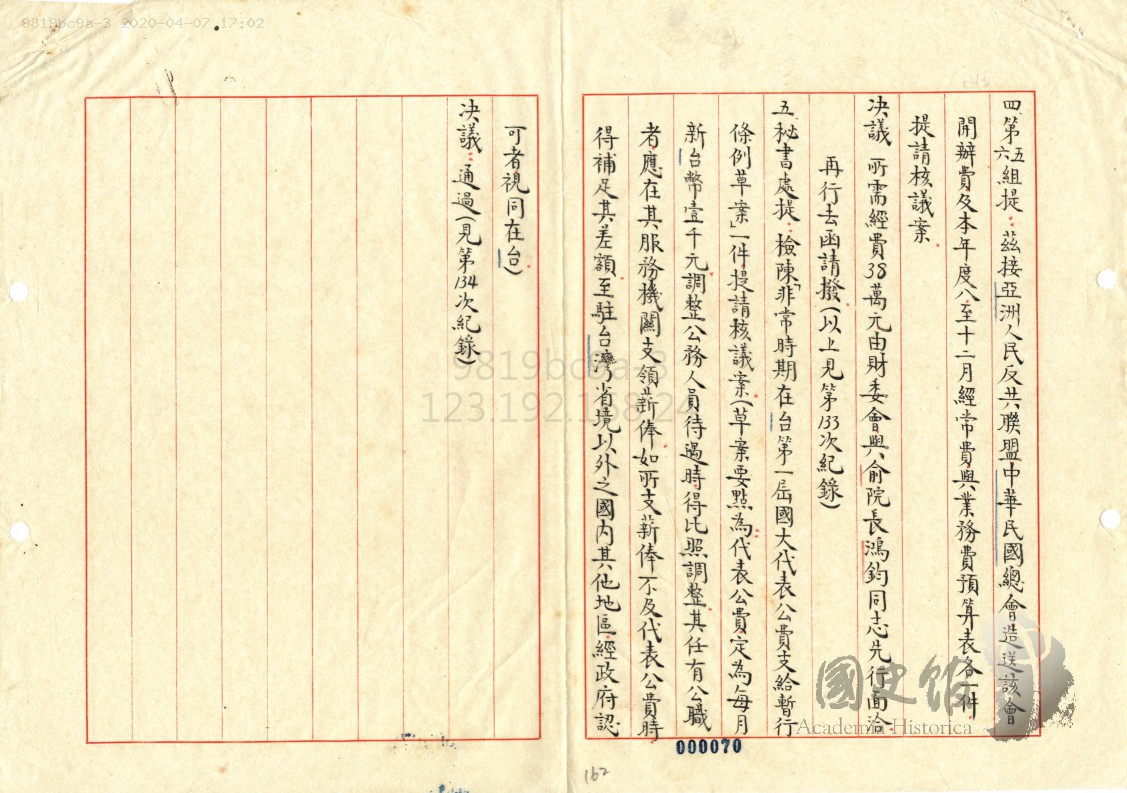 9819bc9a-3 2020-04-07 17:02
四、第五六組提：茲接亞洲人民反共聯盟中華民國總會造送該會
開辦費及本年度八至十二月經常費與業務費預算表各一件
提請核議案。
决議：所需經費38萬元由財委會與俞院長鴻鈞同志先行面洽
再行去函請撥（以上見第133次紀錄）
五、秘書處提：檢陳「非常時期在台第一屆國大代表公費支給暫行
條例草案」一件提請核議案（草案要點為：代表公費定為每月
新台幣壹千元調整公務人員待遇時得比照調整其任有公職
者應在其服務機關支領薪俸如所支薪俸不及代表公費時
得補足其差額至駐台灣省境以外之國內其他地區經政府認
可者視同在台）
决議：通過（見第134次紀錄）
9819bc9a-3
123.192.168.24
國史館
Academia Historica
000070
162